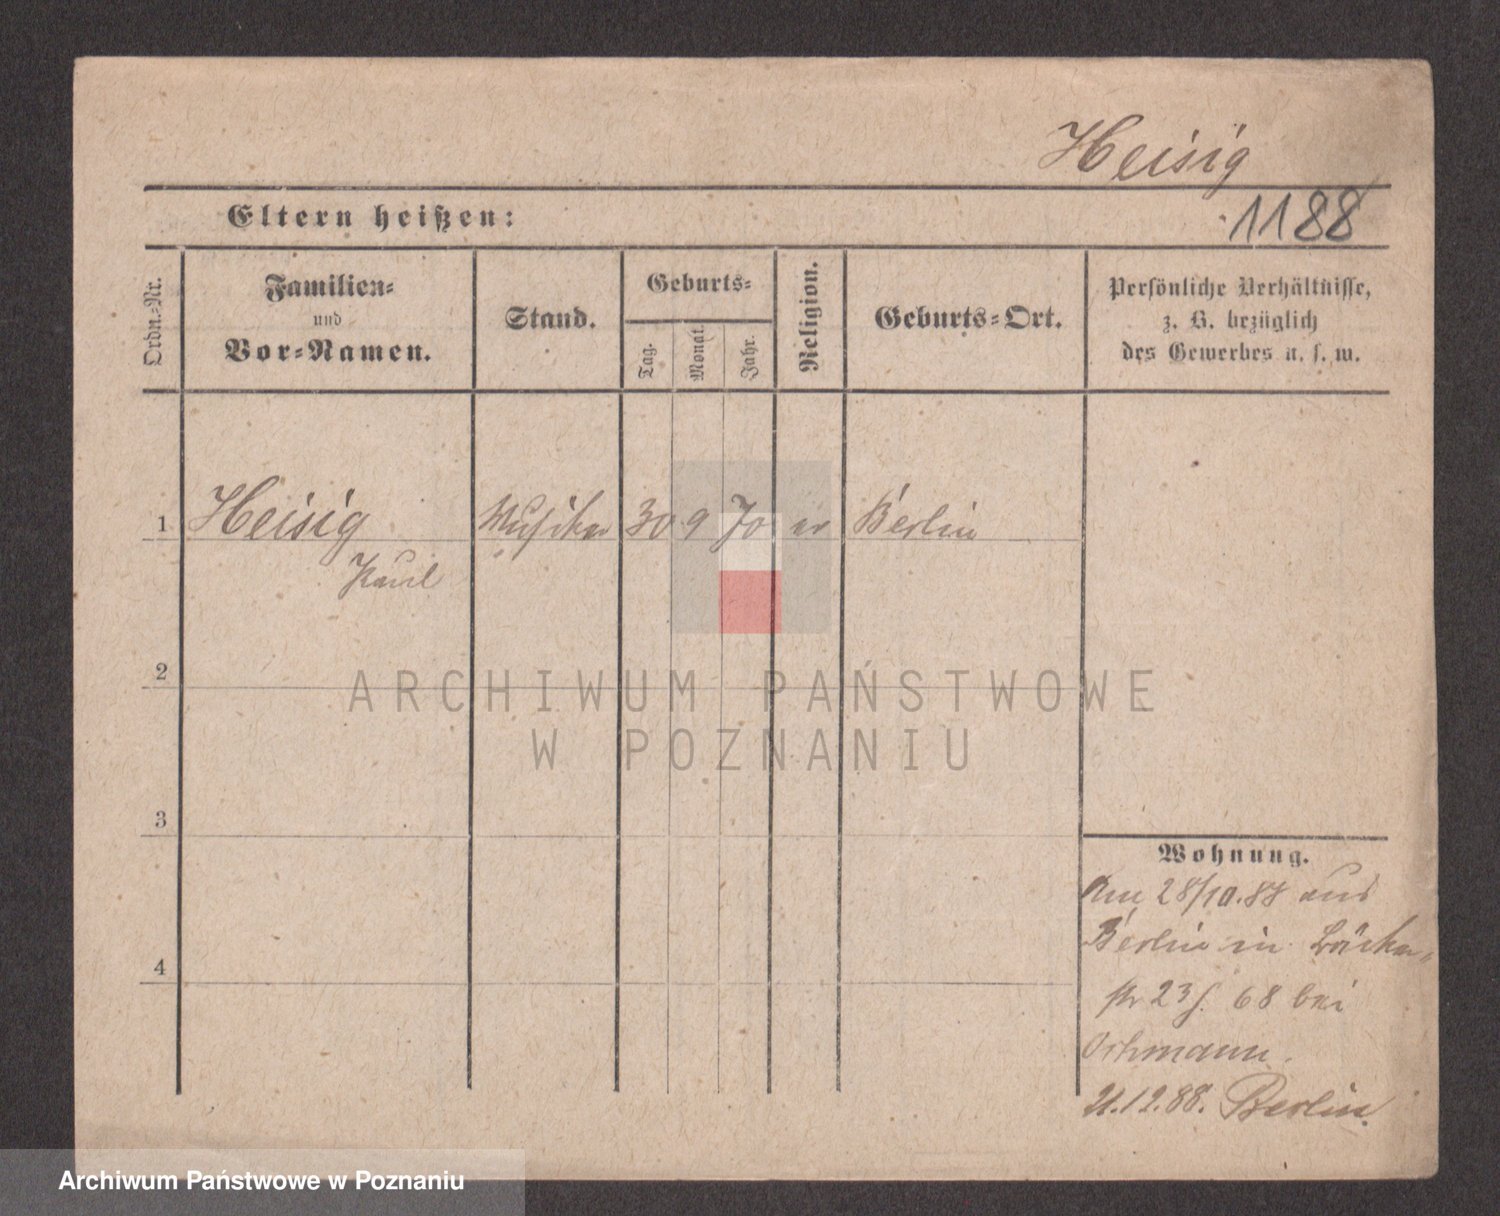 Heisig
1188
Eltern heißen:
Ordn.-Nr.
Familien-
und
Vor-Namen.
Stand.
Geburts-
Tag.
Monat.
Jahr.
Religion.
Geburts-Ort.
Persönliche Verhältnisse,
z. B. bezüglich
des Gewerbes u. s. w.
1 Heisig Musiker 30 9 70 ev Berlin
Paul
2
ARCHIWUM PAŃSTWOWE
W POZNANIU
3
Wohnung.
Am 28/10.87 aus
Berlin in
4
str 23 68 bei
21.12.88. Berlin.
Archiwum Państwowe w Poznaniu